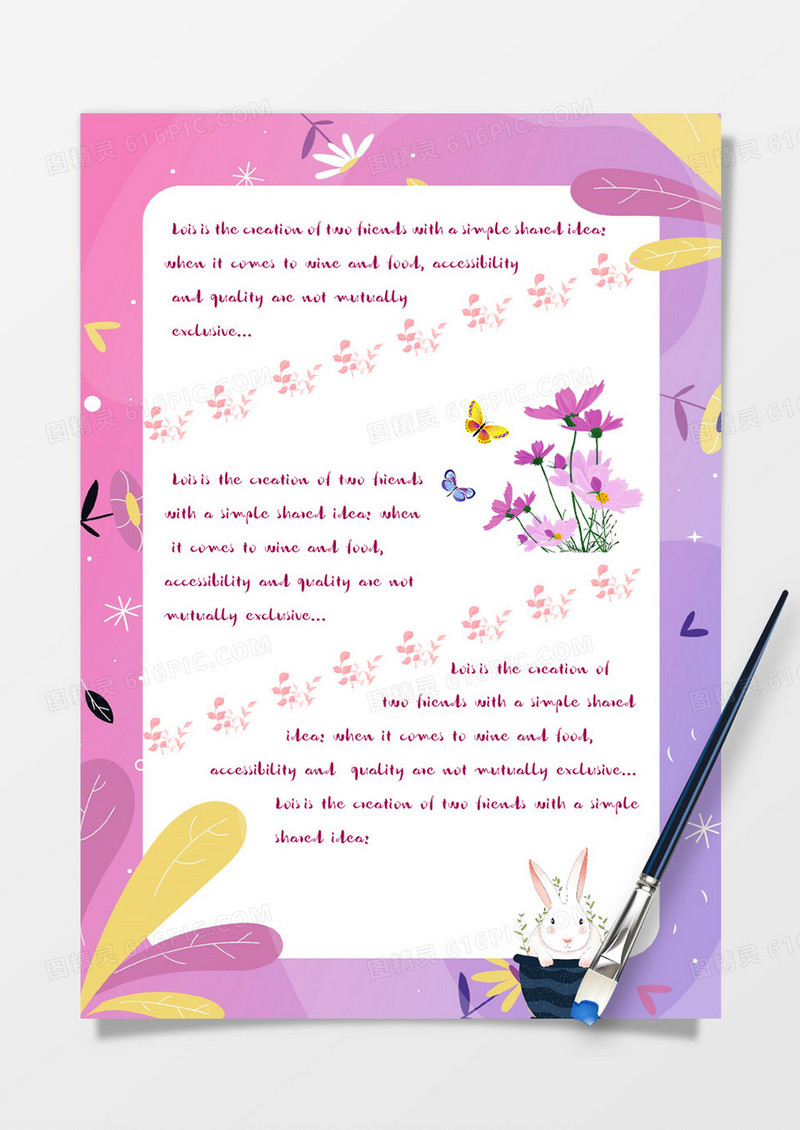 Lois is the creation of two friends with a simple shared idea:
when it comes to wine and food, accessibility
and quality are not mutually
exclusive...
Lois is the creation of two friends
with a simple shared idea: when
it comes to wine and food,
accessibility and quality are not
mutually exclusive...
Lois is the creation of
two friends with a simple shared
idea: when it comes to wine and food,
accessibility and quality are not mutually exclusive...
Lois is the creation of two friends with a simple
shared idea:
图精灵 616PIC.COM